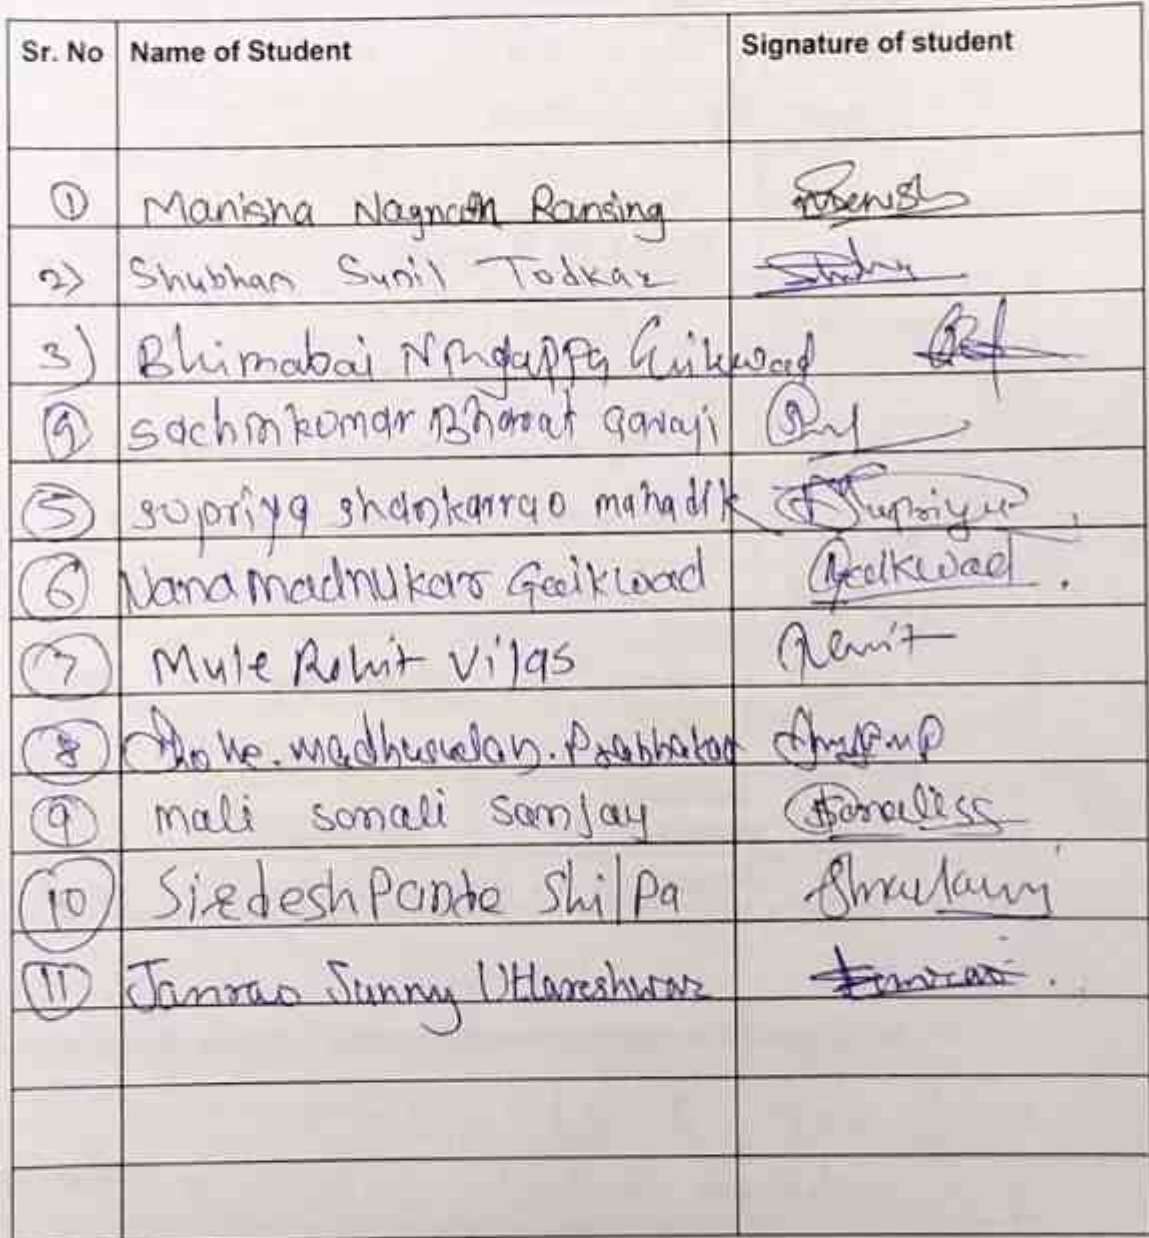 Sr. No Name of Student Signature of student
1 Manisha Nagnath Ransing
2) Shubham Sunil Todkar
3) Bhimabai Ningappa Gaikwad
4 Sachinkumar Bharat Gavaji
5 supriya shankarrao mahadik Supriya
6 Nana madhukar Gaikwad Gaikwad
7 Mule Rohit Vilas Rohit
8 madhusudan. Prabhakar
9 mali sonali sanjay
10 Sirdeshpande Shilpa
11 Janrao Sunny Uttareshwar